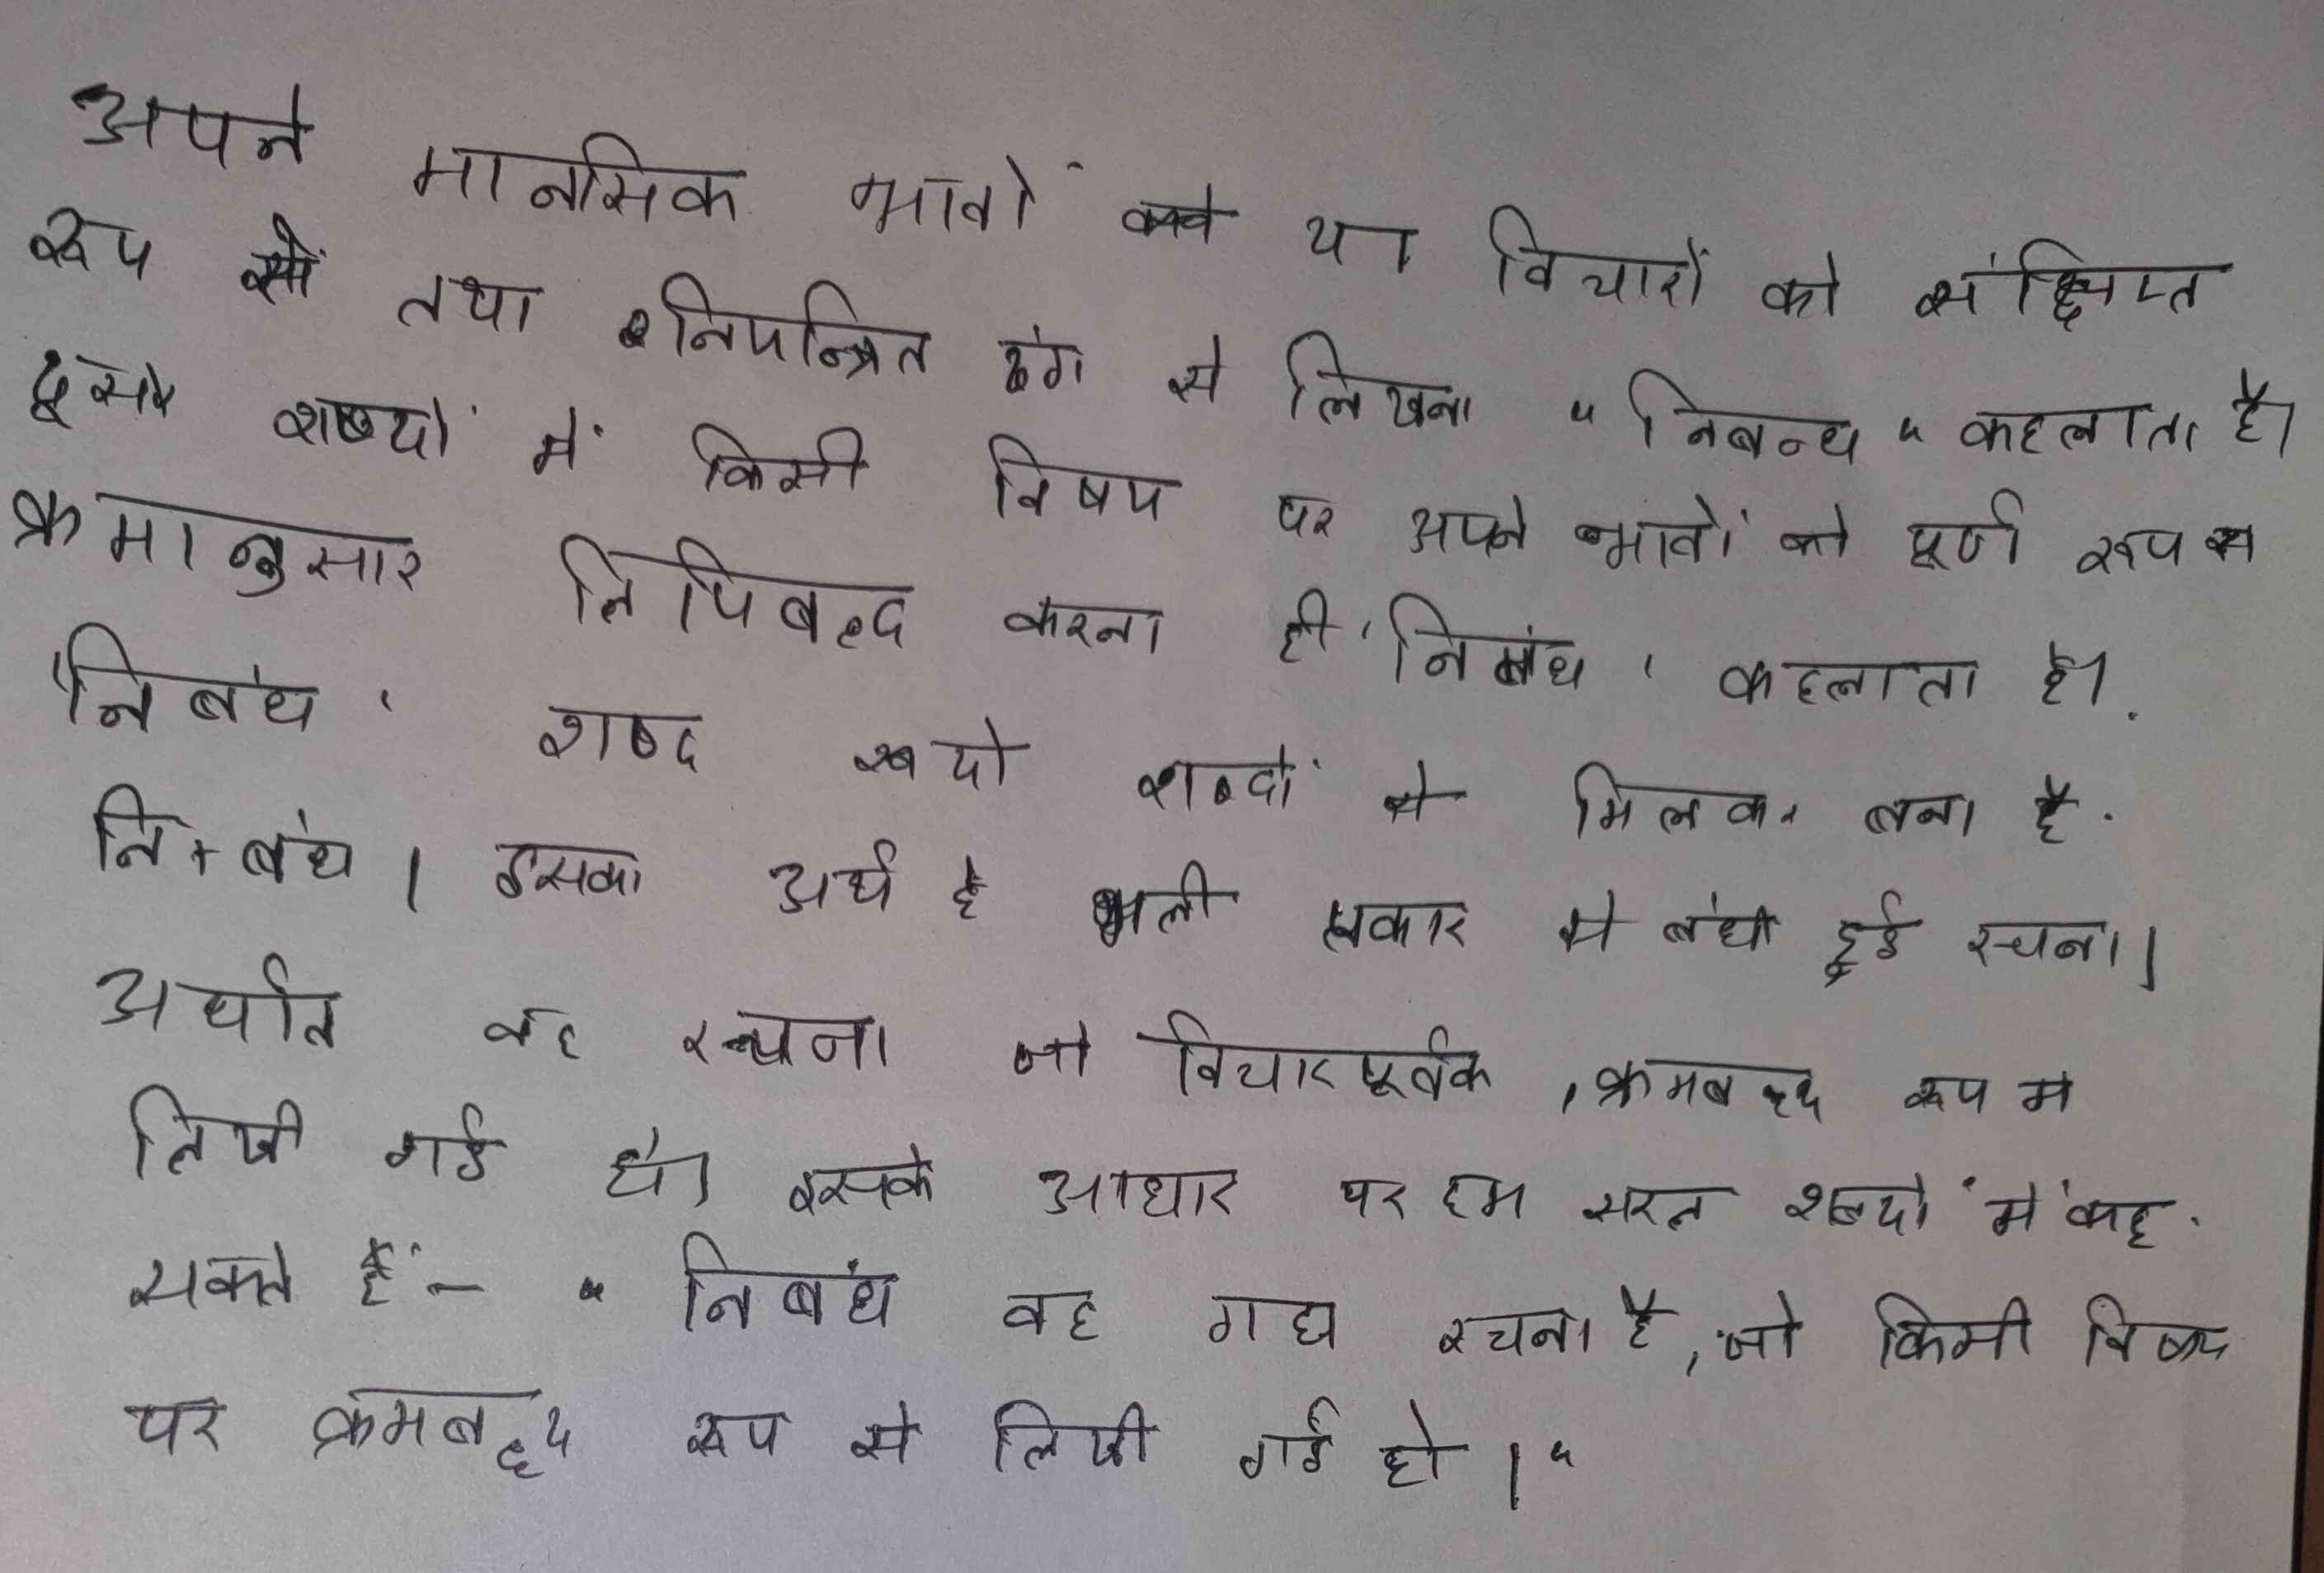 अपने मानसिक भावों या विचारों को संक्षिप्त
रूप से तथा नियन्त्रित ढंग से लिखना "निबन्ध" कहलाता है।
दूसरे शब्दों में किसी विषय पर अपने भावों को पूर्ण रूप से
क्रमानुसार लिपिबद्ध करना ही 'निबंध' कहलाता है।
'निबंध' शब्द दो शब्दों से मिलकर बना है.
नि+बंध। इसका अर्थ है भली प्रकार से बंधी हुई रचना।
अर्थात वह रचना जो विचारपूर्वक, क्रमबद्ध रूप से
लिखी गई हो। इसके आधार पर हम सरल शब्दों में कह
सकते हैं:- "निबंध वह गद्य रचना है, जो किसी विषय
पर क्रमबद्ध रूप से लिखी गई हो।"